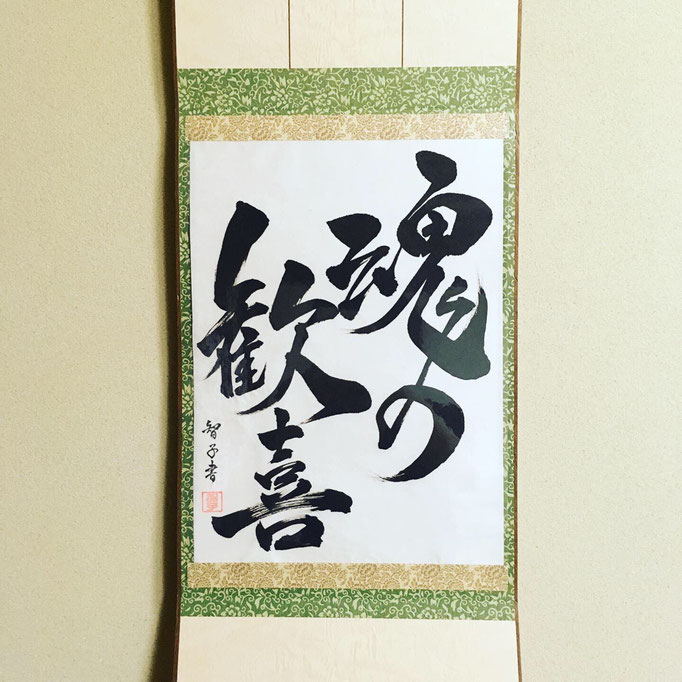 魂の
歓喜
智子書